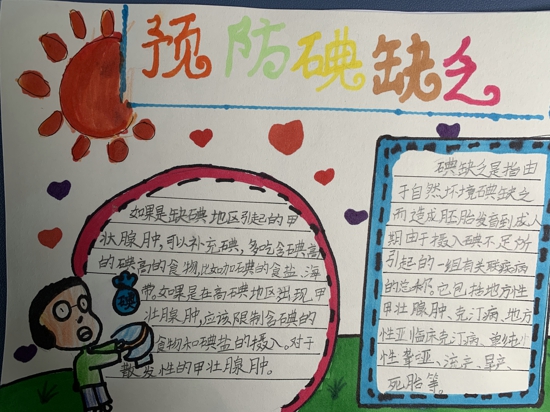 预防碘缺乏
如果是缺碘地区引起的甲
状腺肿,可以补充碘,多吃含碘高
的碘高的食物,比如加碘的食盐、海
带。如果是在高碘地区出现甲
状腺肿,应该限制含碘的
食物和碘盐的摄入。对于
散发性的甲状腺肿。
碘
碘缺乏是指由
于自然环境碘缺乏
而造成胚胎发育到成人
期由于摄入碘不足所
引起的一组有关联疾病
的总称。它包括地方性
甲状腺肿、克汀病、地方
性亚临床克汀病、单纯
性聋哑、流产、早产、
死胎等。